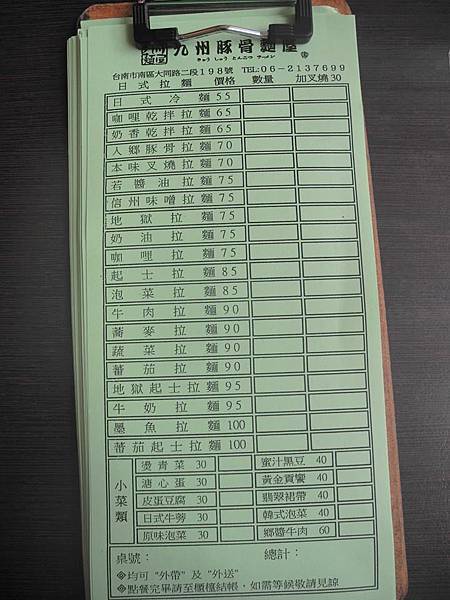 九州豚骨麵屋
きゅう しゅう とんこつ ラーメン
台南市南區大同路二段198號 TEL:06-2137699
日式拉麵 價格 數量 加叉燒30
日式冷麵 55
咖哩乾拌拉麵 65
奶香乾拌拉麵 65
人鄉豚骨拉麵 70
本味叉燒拉麵 70
若醬油拉麵 75
信州味噌拉麵 75
地獄拉麵 75
奶油拉麵 75
咖哩拉麵 75
起士拉麵 85
泡菜拉麵 85
牛肉拉麵 90
蕎麥拉麵 90
蔬菜拉麵 90
蕃茄拉麵 90
地獄起士拉麵 95
牛奶拉麵 95
墨魚拉麵 100
蕃茄起士拉麵 100
小菜類
燙青菜 30 蜜汁黑豆 40
溏心蛋 30 黃金貢饗 40
皮蛋豆腐 30 翡翠裙帶 40
日式牛蒡 30 韓式泡菜 40
原味泡菜 30 鄉醬牛肉 60
桌號： 總計：
◈均可"外帶"及"外送"
◈點餐完畢請至櫃檯結帳，如需等候敬請見諒